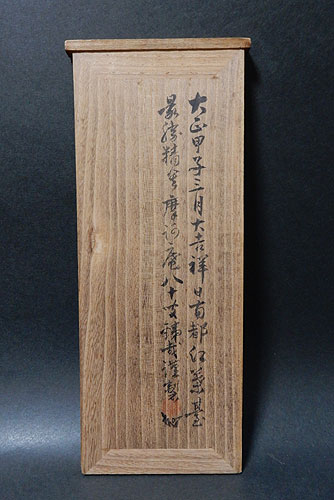 大正甲子三月大吉祥日南都紅葉臺
最勝精舎摩訶庵八十叟稀哉謹製